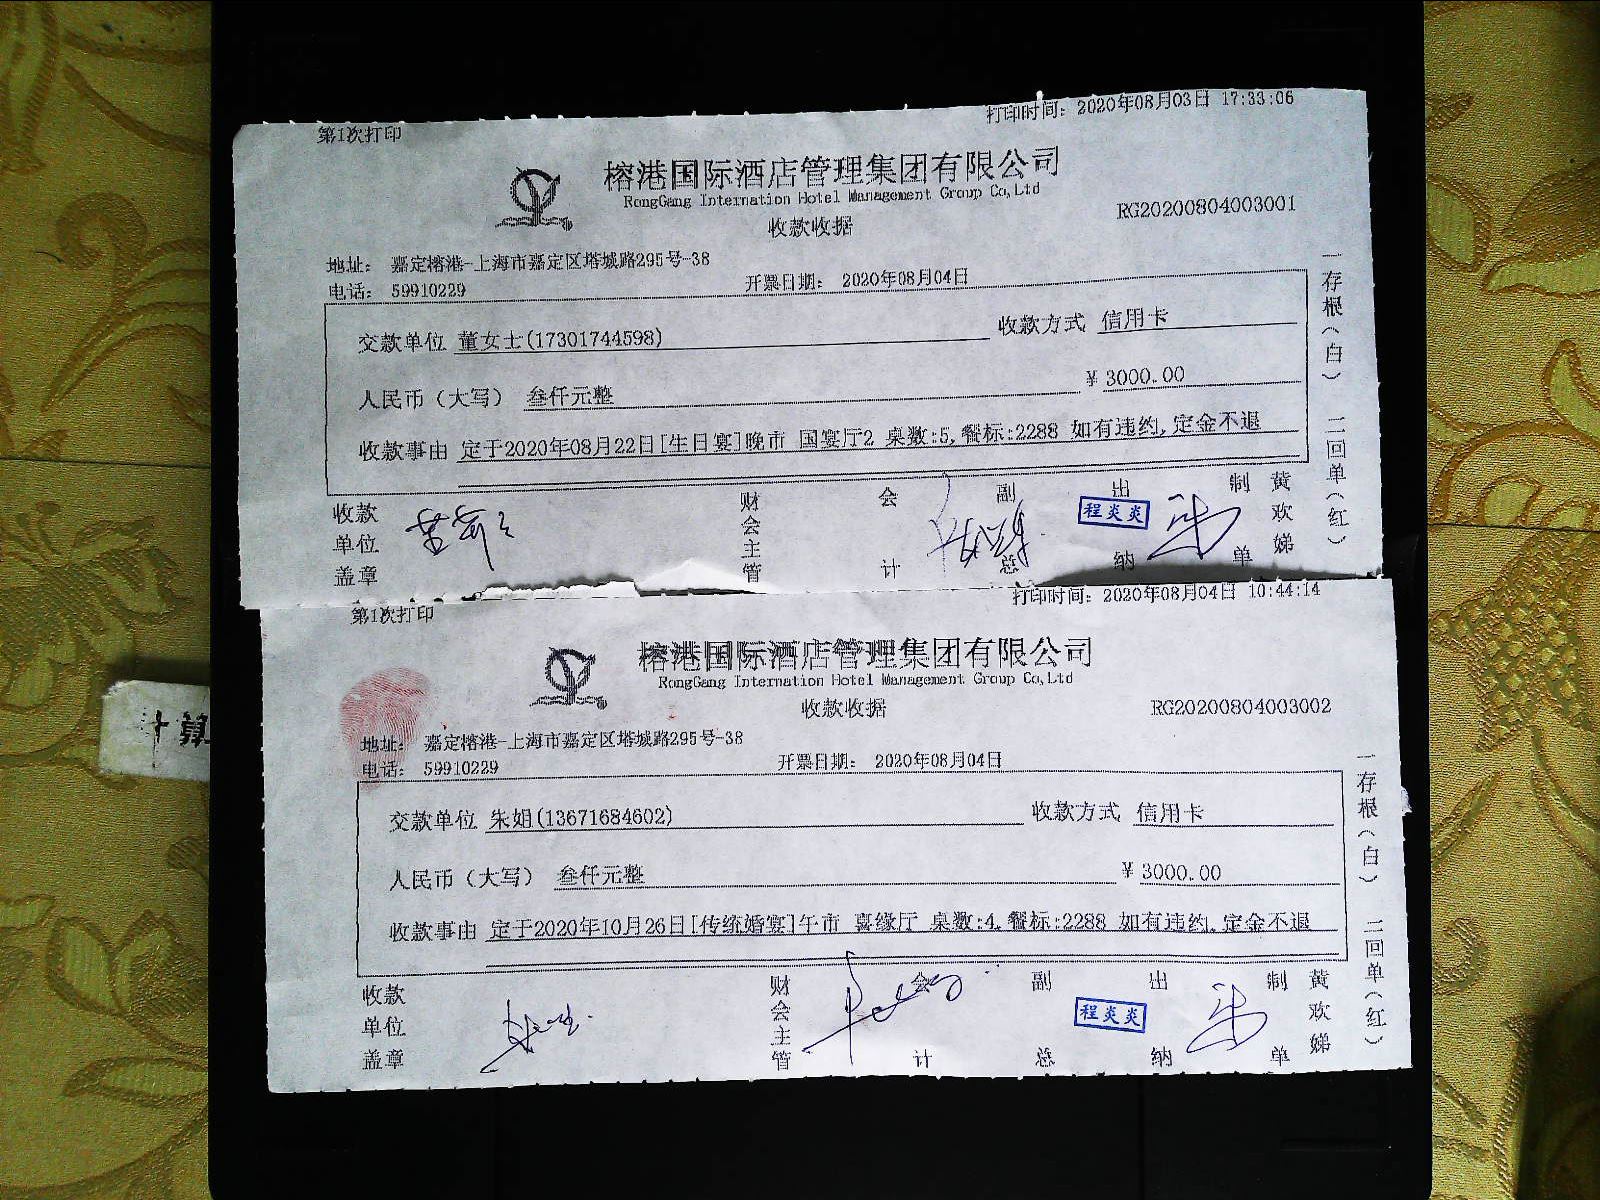 第1次打印 打印时间: 2020年08月03日 17:33:06
榕港国际酒店管理集团有限公司
RongGang Internation Hotel Management Group Co,Ltd
收款收据 RG20200804003001
地址: 嘉定榕港-上海市嘉定区塔城路295号-38
电话: 59910229 开票日期: 2020年08月04日
交款单位 董女士(17301744598) 收款方式 信用卡
人民币(大写) 叁仟元整 ¥ 3000.00
收款事由 定于2020年08月22日[生日宴]晚市 国宴厅2 桌数:5,餐标:2288 如有违约,定金不退
收款单位盖章 财会主管 会计 副总 出纳 程炎炎 制单 黄欢娣
一存根(白) 二回单(红)
第1次打印 打印时间: 2020年08月04日 10:44:14
榕港国际酒店管理集团有限公司
RongGang Internation Hotel Management Group Co,Ltd
收款收据 RG20200804003002
地址: 嘉定榕港-上海市嘉定区塔城路295号-38
电话: 59910229 开票日期: 2020年08月04日
交款单位 朱姐(13671684602) 收款方式 信用卡
人民币(大写) 叁仟元整 ¥ 3000.00
收款事由 定于2020年10月26日[传统婚宴]午市 喜缘厅 桌数:4,餐标:2288 如有违约,定金不退
收款单位盖章 财会主管 会计 副总 出纳 程炎炎 制单 黄欢娣
一存根(白) 二回单(红)